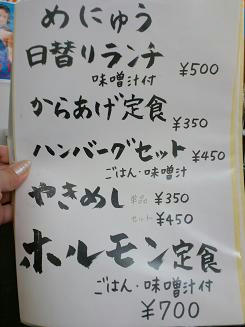 めにゅう
日替りランチ
味噌汁付 ¥500
からあげ定食
¥350
ハンバーグセット ¥450
ごはん・味噌汁
やきめし 単品 ¥350
セット ¥450
ホルモン定食
ごはん・味噌汁付
¥700